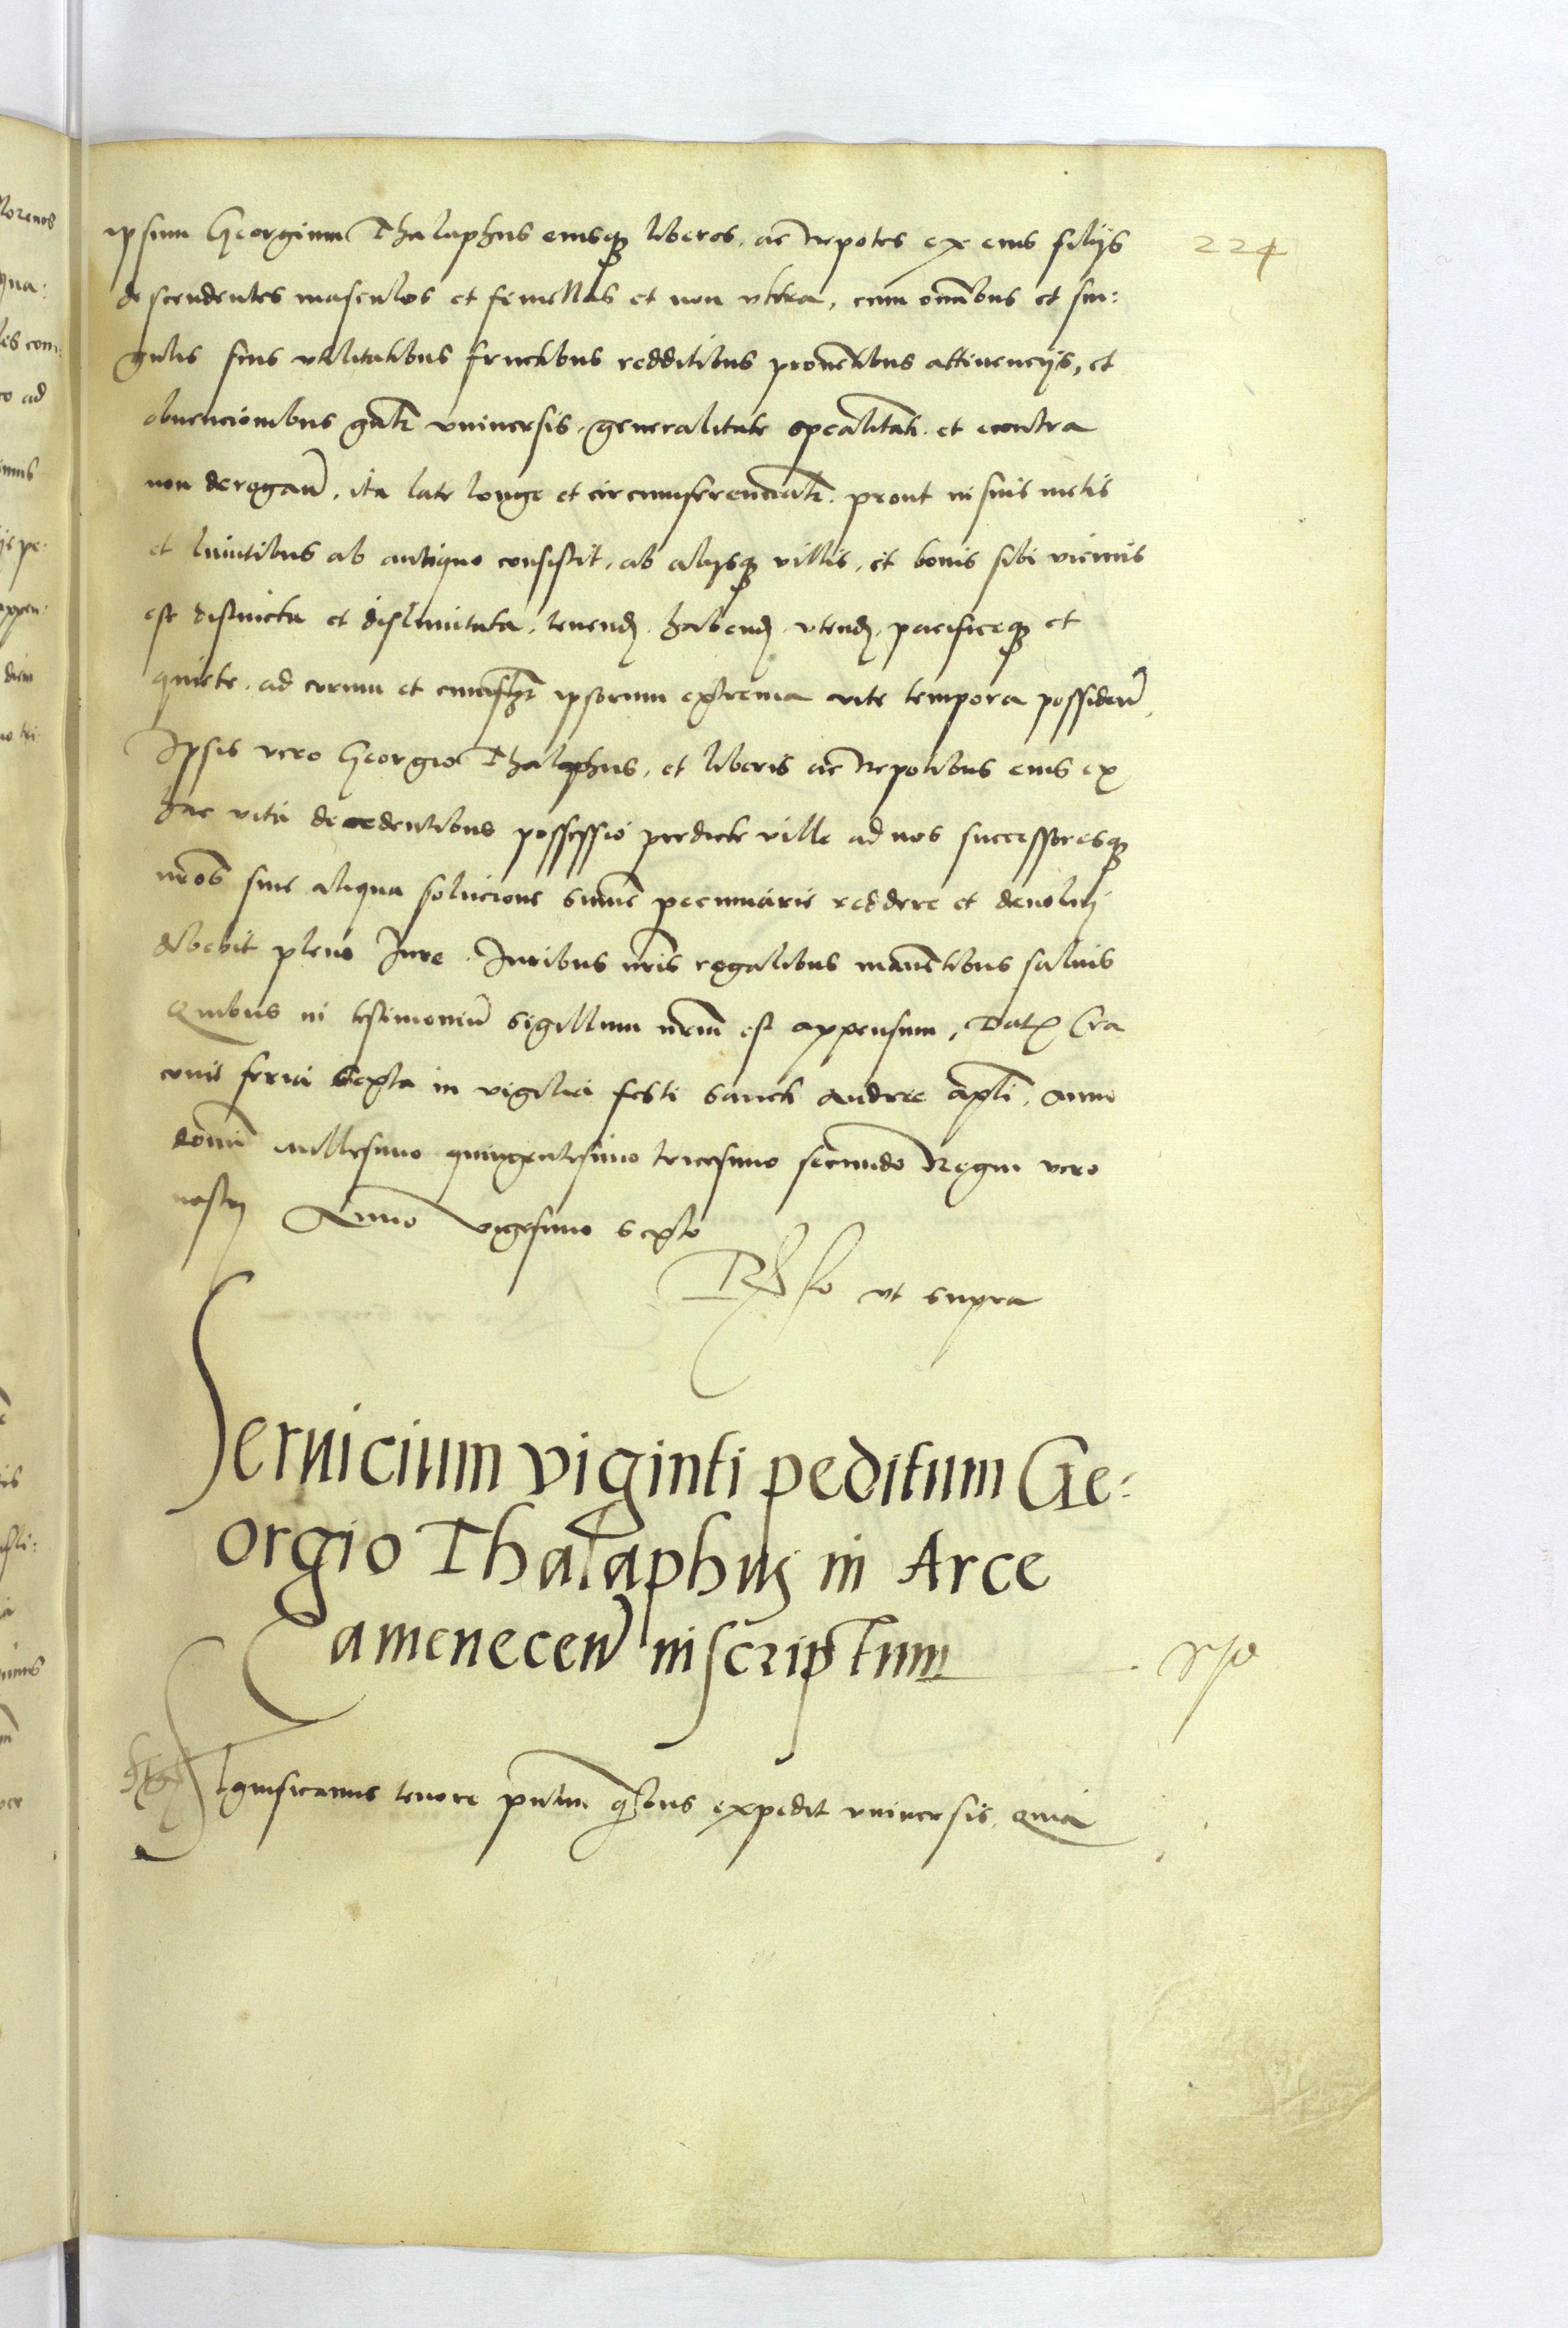 224
ipsum Georgium Thalaphus eiusq liberos, ac Nepotes ex eius filijs
descendentes masculos et femellas et non vltra, cum omibus et sin:
gulis suis vtilitatibus fructibus redditibus prouentibus attinencijs, et
obuencionibus gnatr vniuersis, generalitate specalitati et econtra
non derogan, ita late longe et circumferencialr. prout in suis metis
et limitibus ab antiquo consistit, ab alijsq villis, et bonis sibi vicinis
est distincta et dislimitata, tenend, habend, vtend, pacificeq et
quiete, ad eorum et ipsorum extrema vite tempora possiden,
Ipsis vero Georgio Thalaphus, et liberis ac Nepotibus eius ex
hac vita decedentibus possessio predicte ville ad nos successoresq
nros sine aliqua solucione summe pecuniarie reddere et deuolui
debebit pleno Jure. Juribus nris regalibus manentibus saluis
Quibus in testimoniu sigillum nrum est appensum, Dat Cra
couie feria sexta in vigilia festi sancti Andree apli, anno
domi millesimo quingentesimo tricesimo secundo Regni vero
nostri Anno vigesimo sexto
Rlo ut supra
Seruicium viginti peditum Ge:
orgio Thalaphus in Arce
Camenecen inscriptum
Significamus tenore pntium quibus expedit vniuersis, Quia